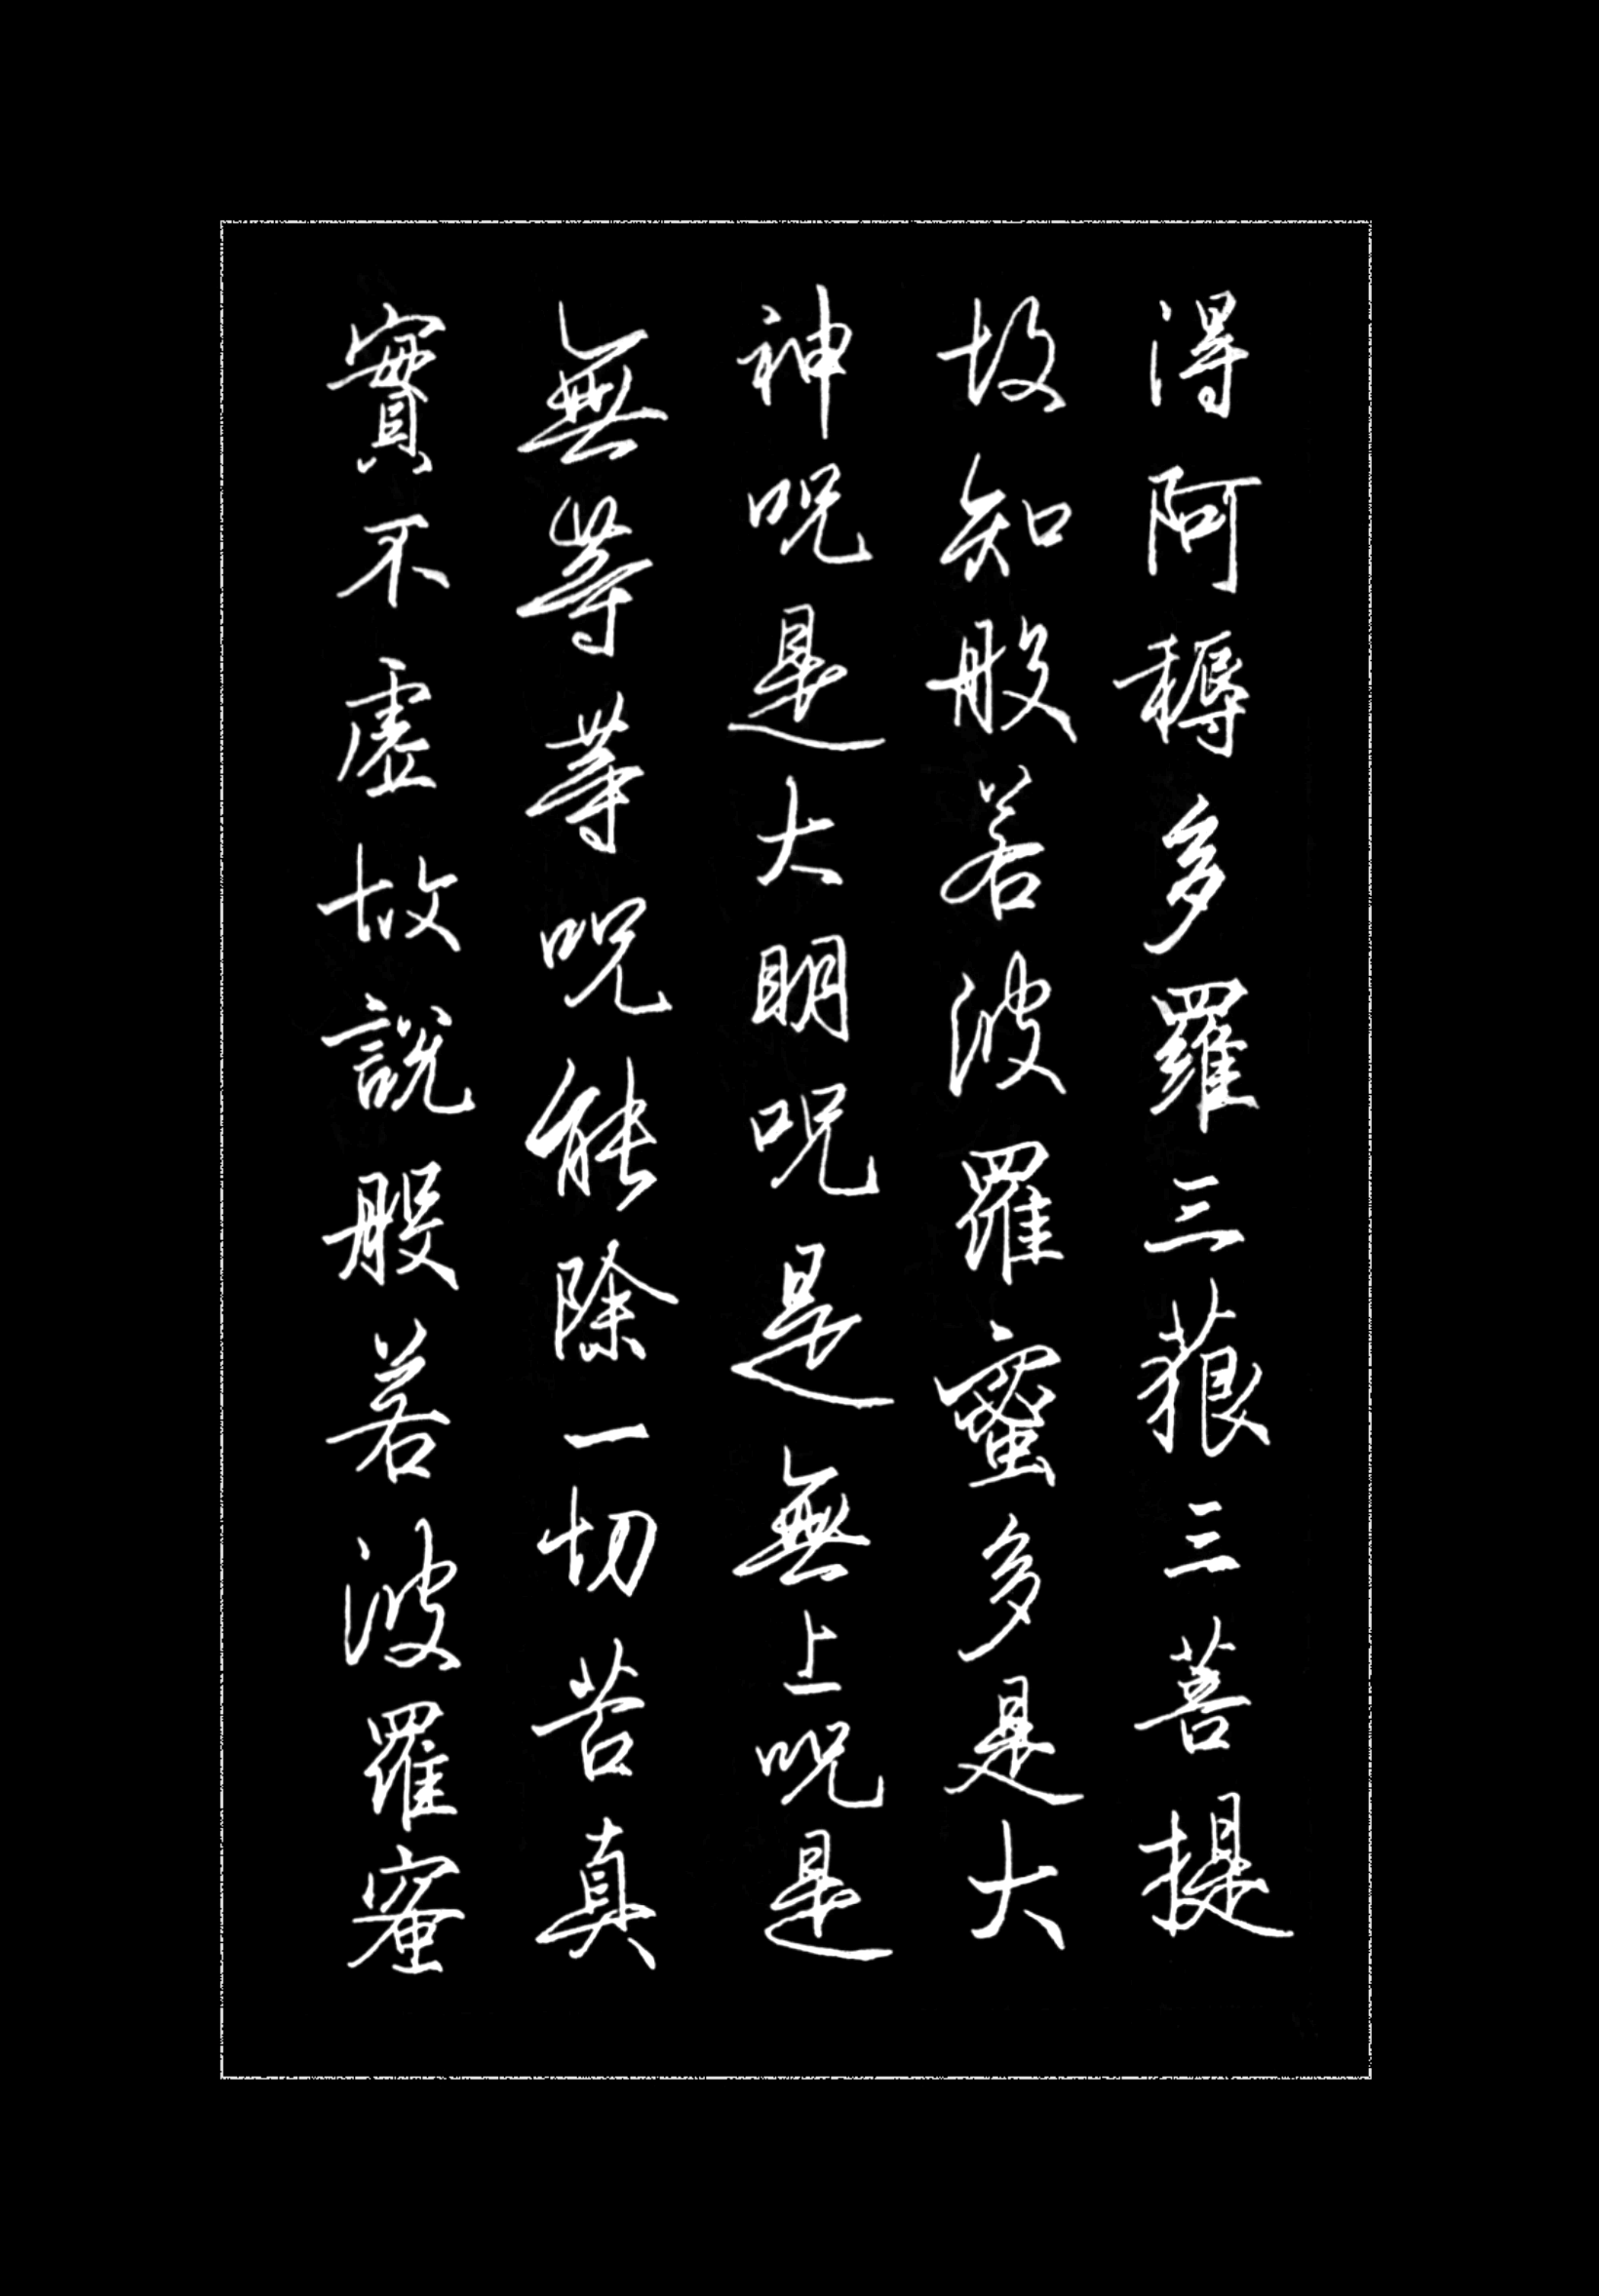 得阿耨多羅三藐三菩提
故知般若波羅蜜多是大
神呪是大明呪是無上呪是
無等等呪能除一切苦真
實不虛故說般若波羅蜜